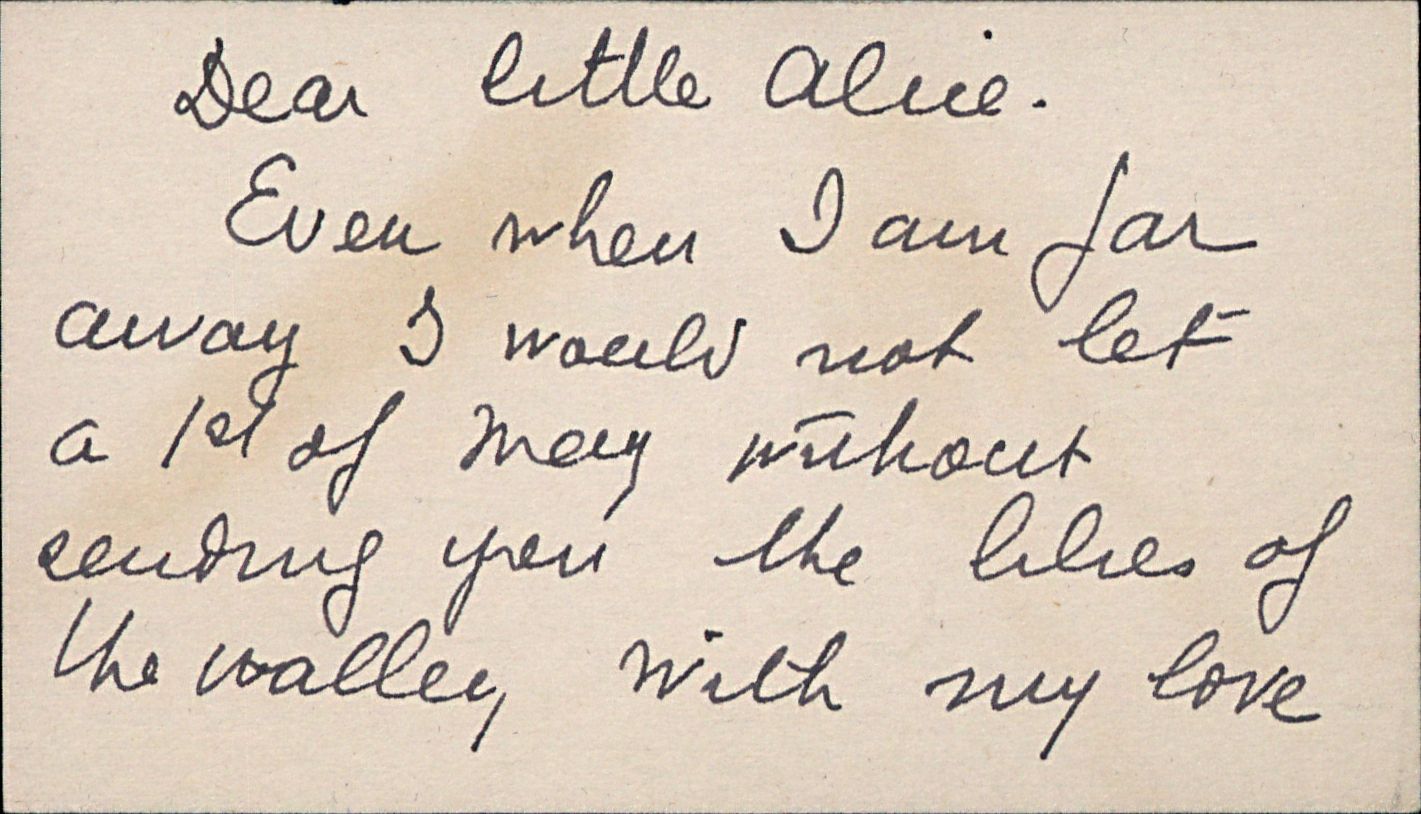 Dear little Alice.
Even when I am far
away I would not let
a 1st of May without
sending you the lilies of
the walley with my love